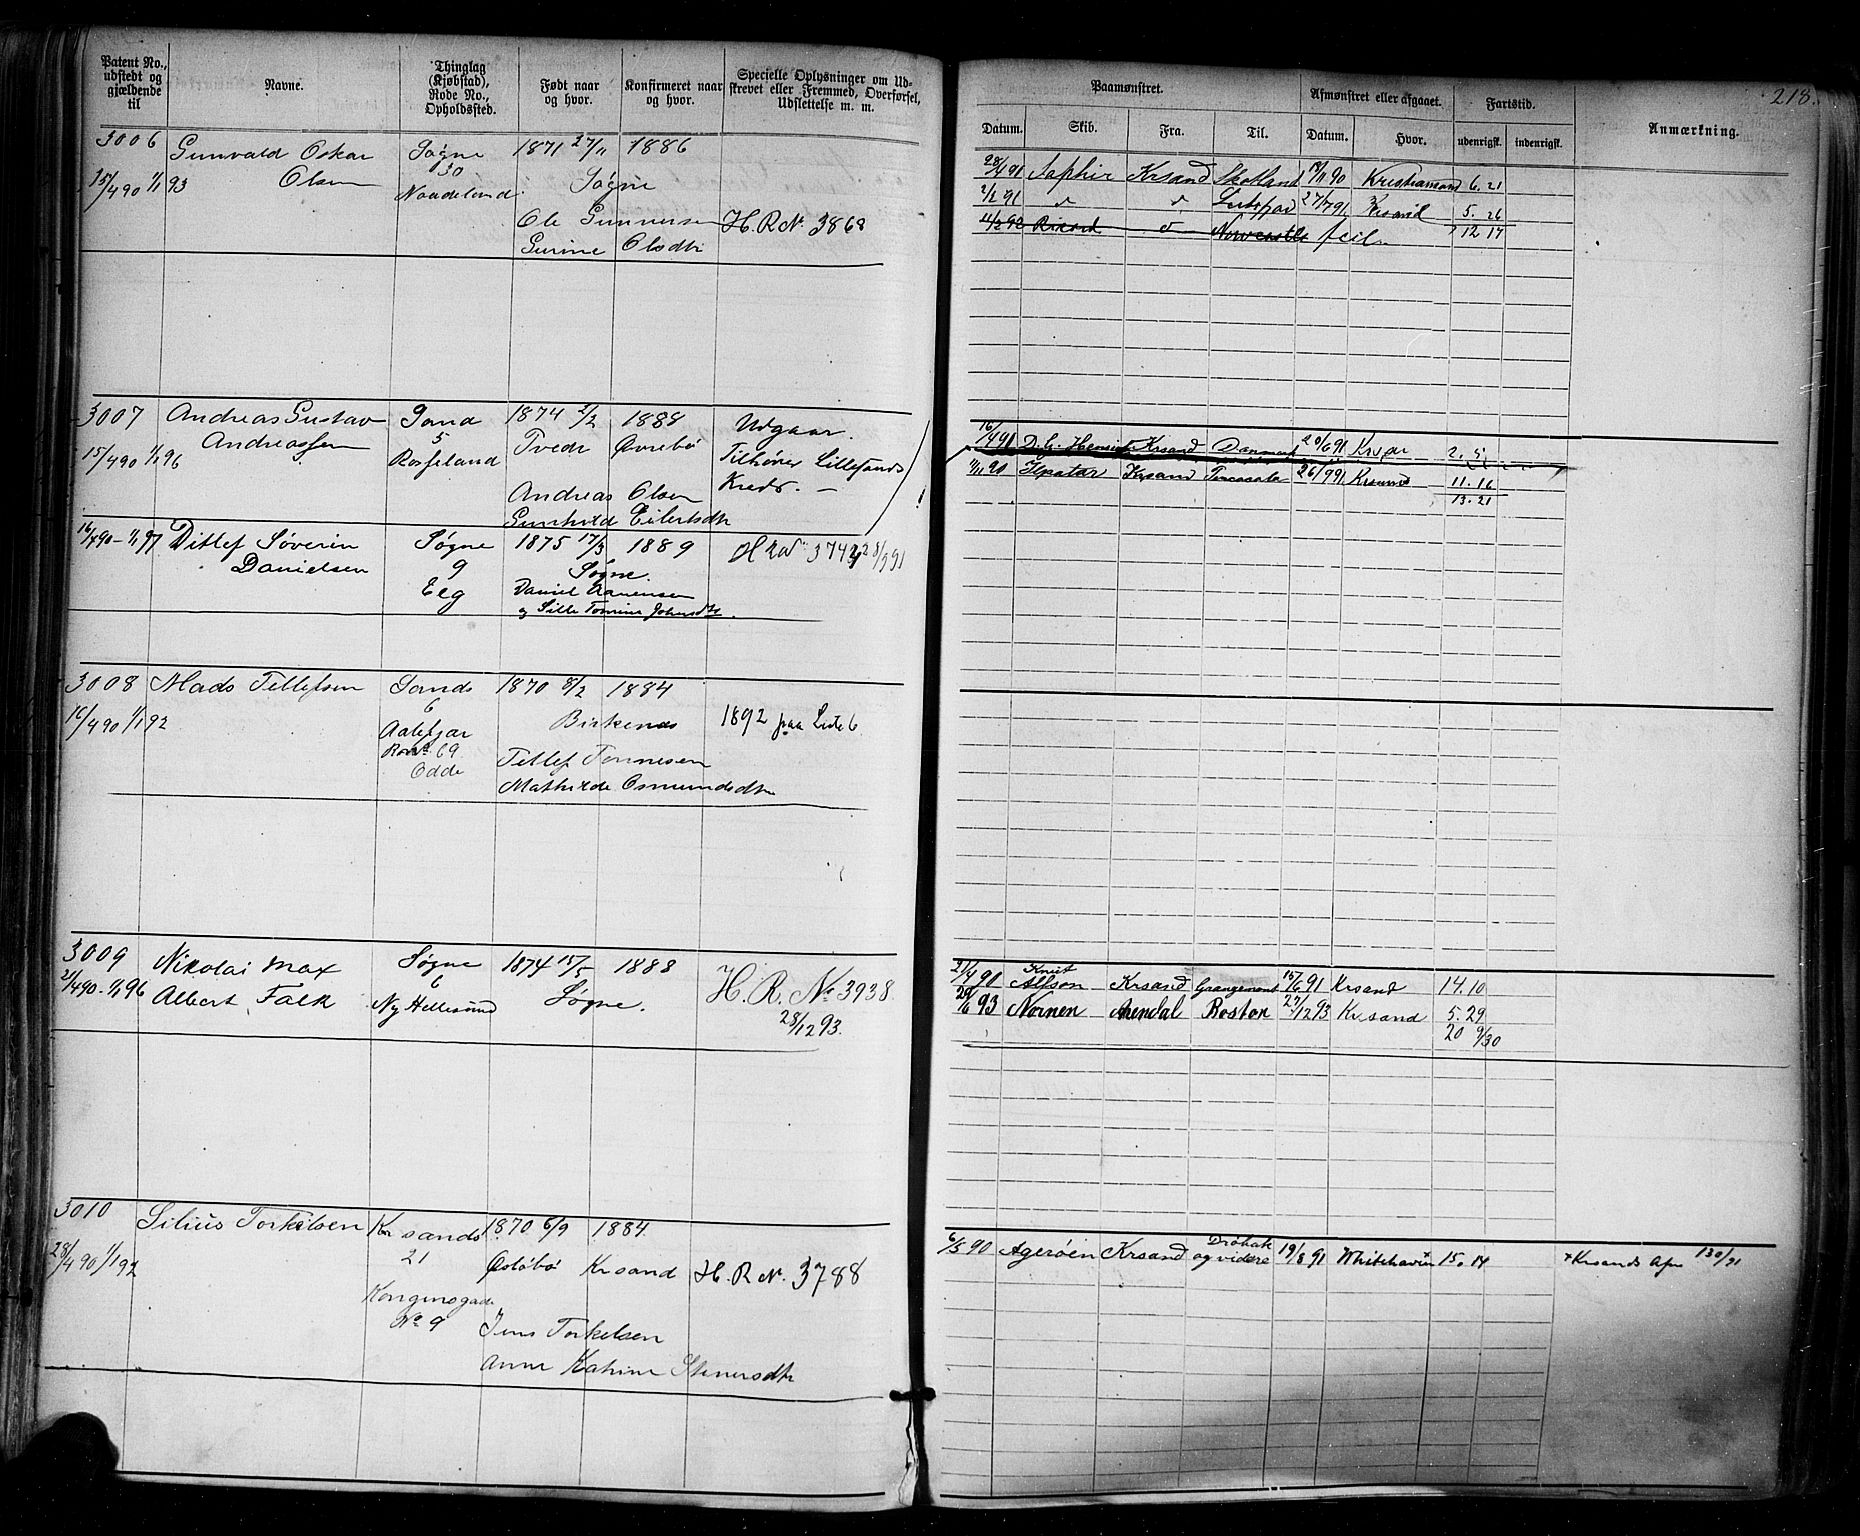 Patent No., udstedt og gjældende til
Navne.
Thinglag (Kjøbstad), Rode No., Opholdssted.
Født naar og hvor.
Konfirmeret naar og hvor.
Specielle Oplysninger om Udskrevet eller Fremmed, Overførsel, Udslettelse m. m.
Paamønstret.
Afmønstret eller afgaaet.
Fartstid.
Anmærkning.
218.
Datum.
Skib.
Fra.
Til.
Datum.
Hvor.
udenrigsk.
indenrigsk.
3006 Gunvald Oskar Søgne 1871 27/11 1886
15/4 90 1/1 93 Olsen 30 Søgne
Naadeland
Ole Gunnersen H.R.N. 3868
Gurine Olsdtr
28/4 91 Saphir Krsand Skotland 90 Kristiansand 6. 21
2/2 91 27/7 91 Krsand 5. 26
Newcastle feil 12 17
3007 Andreas Gustav Sand 1874 2/2 1888 Udgaar.
15/4 90 1/1 96 Andreassen 5 Tvedt Øvrebø Tilhører Lillesands
Rosseland Kreds. —
Andreas Olsen
Gunhild Eilertsdtr
16/4 91 Krsand Danmark 20/6 91 2. 5
11/11 90 Krsand 26/9 91 Krsand 11. 16
13. 21
16/4 90 - 1/1 97 Ditlef Søverin Søgne 1875 17/3 1889 28/9 91
Danielsen 9 Søgne.
Eeg Daniel Aanensen
og Sille Tomine Johnsdtr.
3008 Mads Tellefsen Sands 1870 8/2 1884
16/4 90 1/1 92 6 Birkenes 1892 paa Liste 6
Aalefjær
69
Odde Tellef Tønnesen
Mathilde Osmundsdtr
3009 Nikolai Max Søgne 1874 15/5 1888 H. R. No 3938.
21/4 90 - 1/1 96 Albert Falk 6 Søgne. 28/12 93.
Ny Hellesund
Knut
21/4 90 Alfson Krsand Grangemont 15/6 91 Krsand 14. 10
93 Nornen Arendal Roston 27/12 93 Krsand 5. 29
20 9/30
3010 Silius Torkelsen Krsands 1870 6/9 1884
28/4 90 1/1 92 21 Oslobø Krsand H. R N. 3788
Kongensgade
No 9 Jens Torkelsen
Anne Katrine Stenersdtr
Drøbak
6/5 90 Agerøen Krsand og videre 19/8 91 Whitehaven 15. 14 + Krsands Afm 91